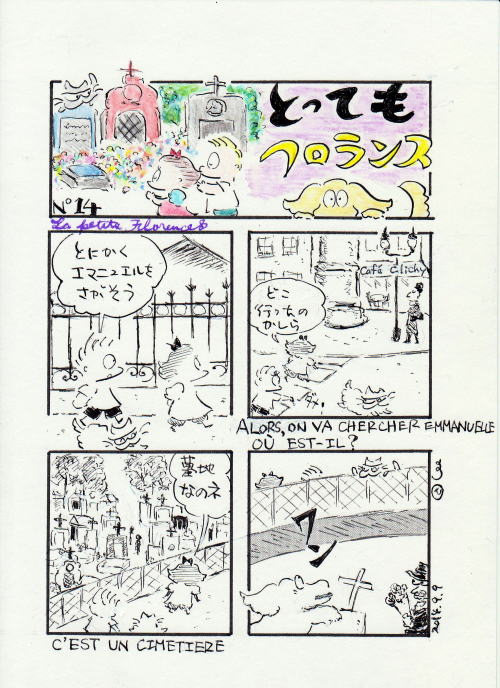 とっても
フロランス
N°14
La petite Florence
とにかく
エマニュエルを
さがそう
どこ
行っちゃの
かしら
Café Clichy
ALORS, ON VA CHERCHER EMMANUELLE
OÙ EST-IL?
墓地
なのネ
C'EST UN CIMETIERE
ワン
2014.9.9